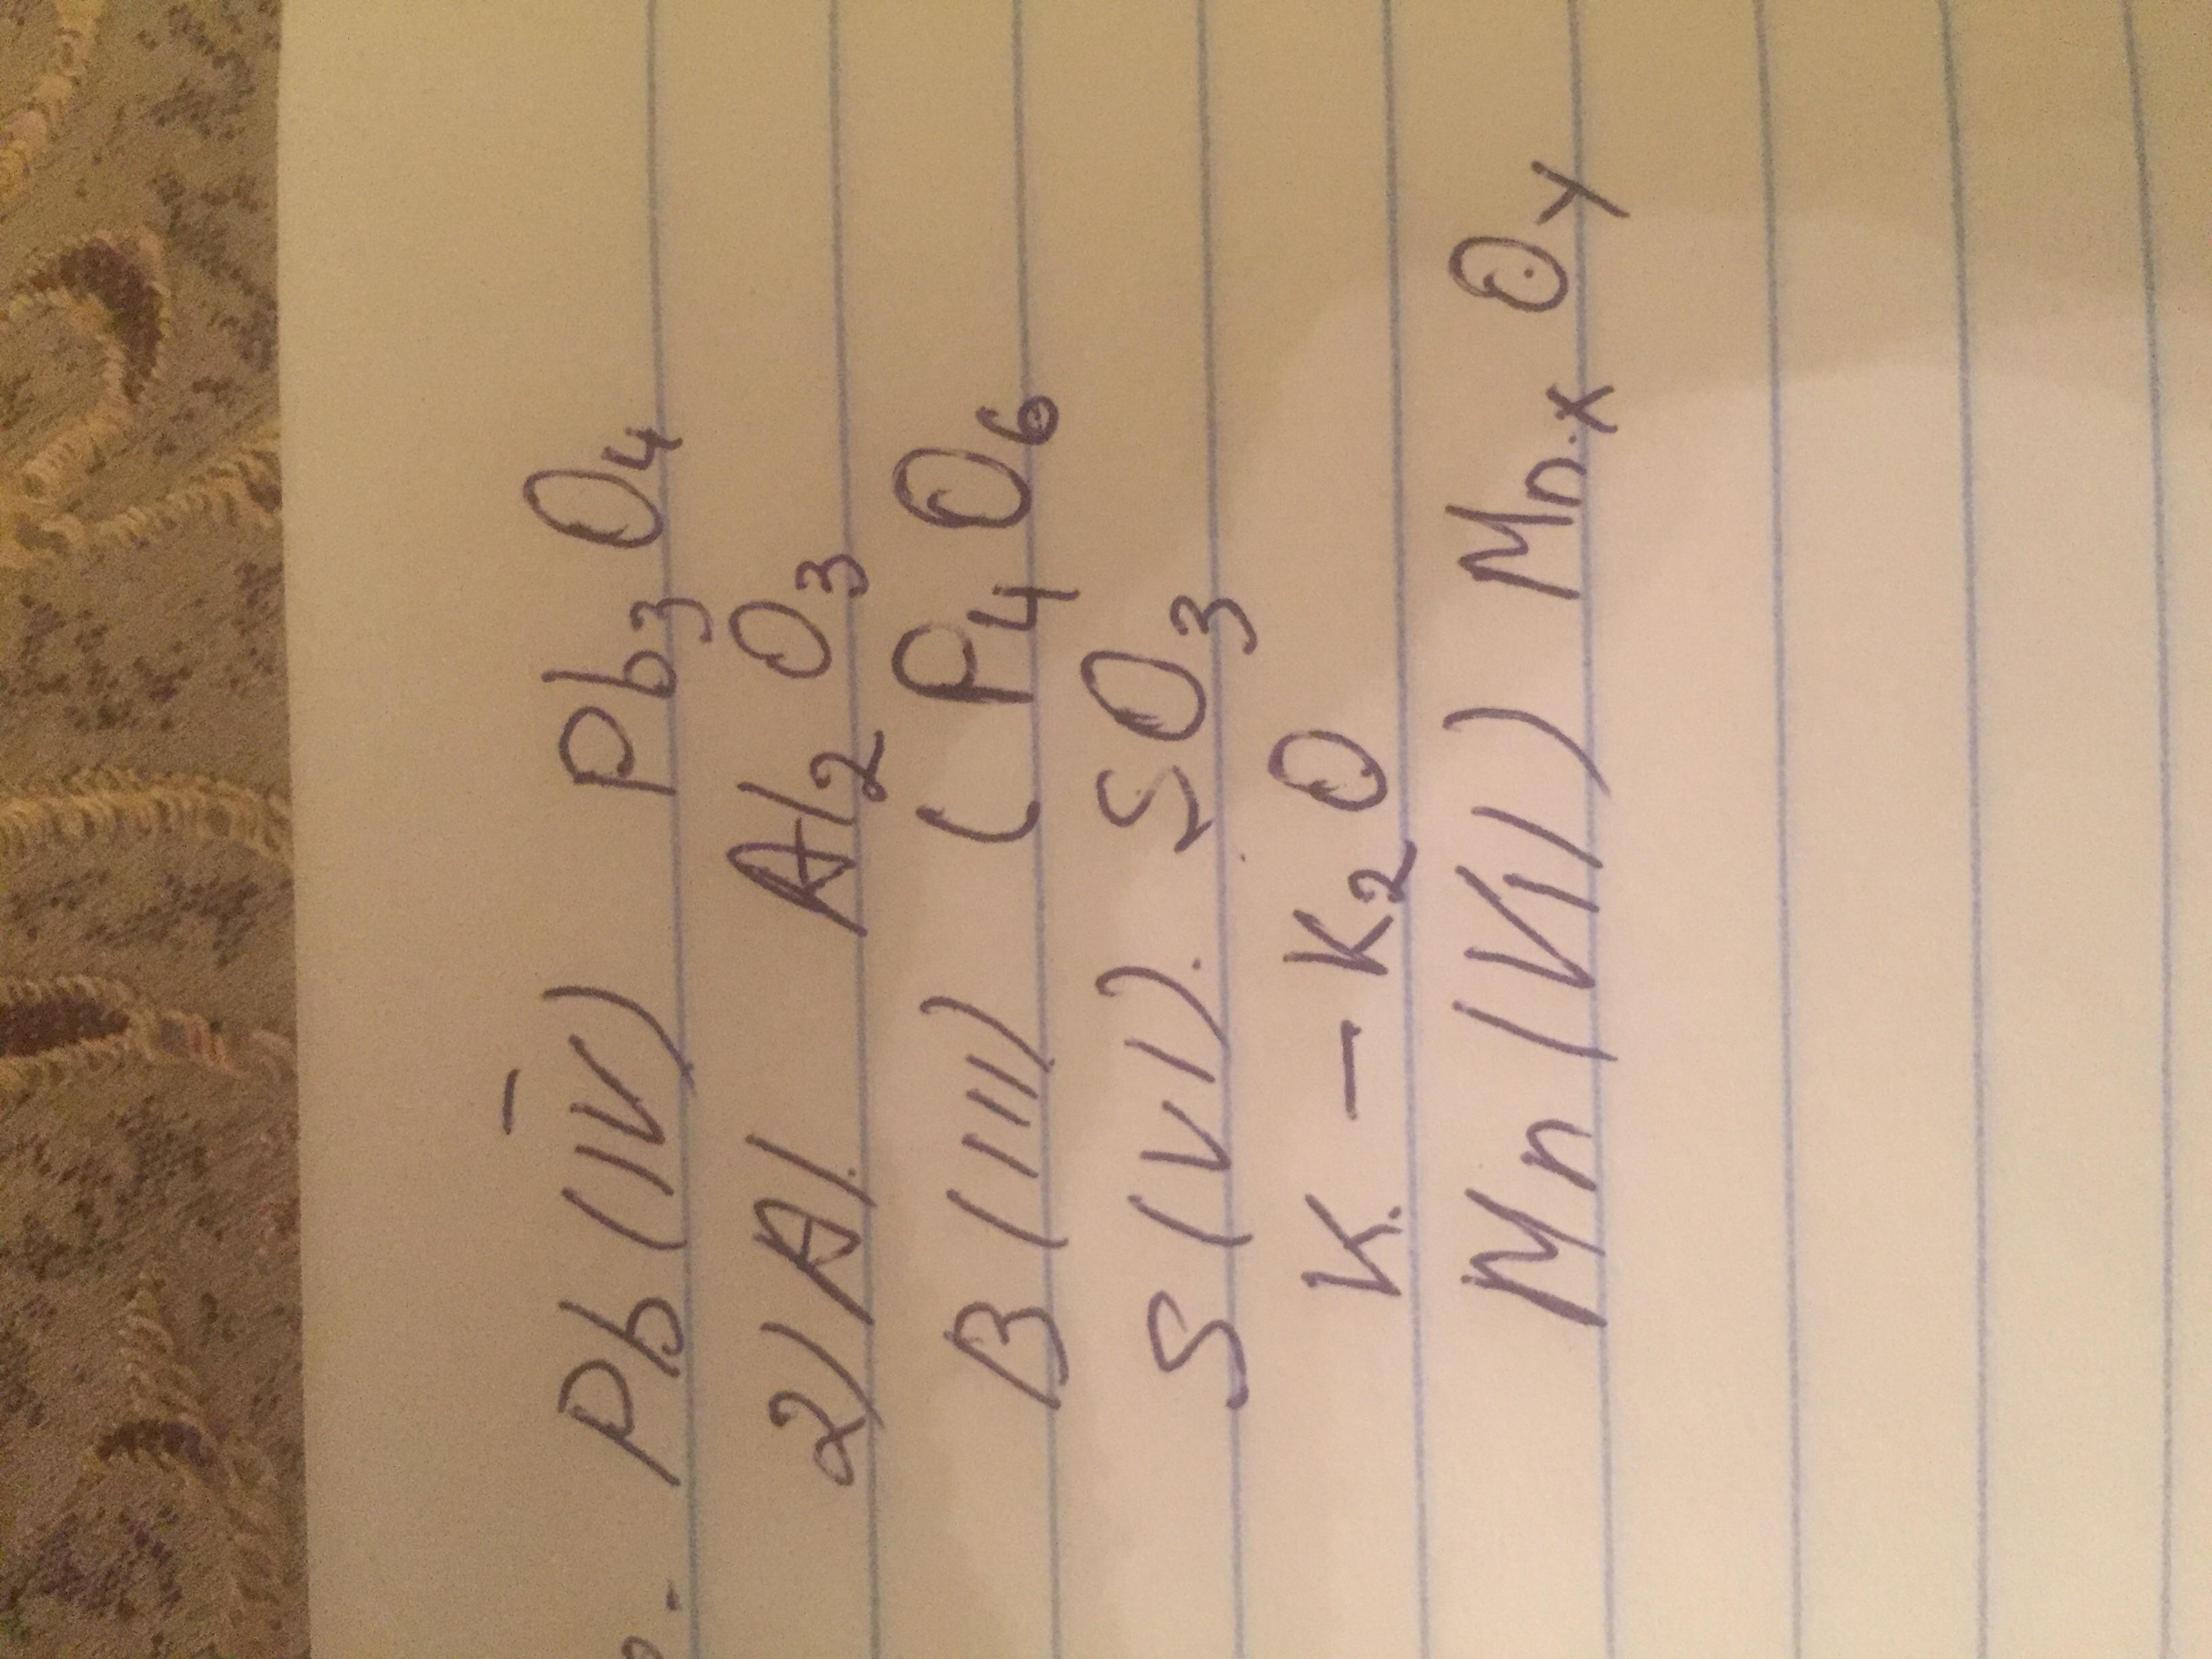 Pb (IV) Pb3 O4
2) Al. Al2 O3
B (III) (P4 O6
S (VI). SO3
K. - K2 O
Mn (VII) Mn.x Oy